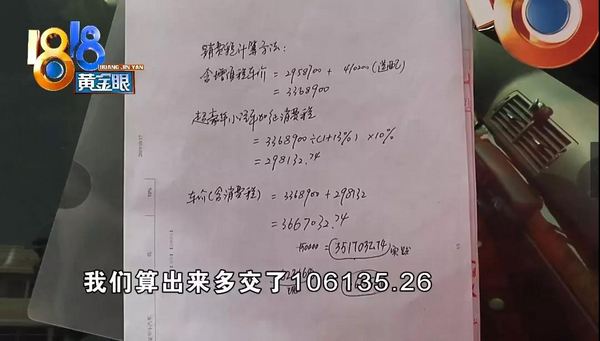 1818
HUANG JIN YAN
黄金眼
消费税计算方法:
含增值税车价 = 2958700 + 410200(选配)
= 3368900
超豪华小汽车加征消费税
= 3368900÷(1+13%) ×10%
= 298132.74
车价(含消费税) = 3368900 + 298132
= 3667032.74
-150000 = 3517032.74 实际
我们算出来多交了106135.26